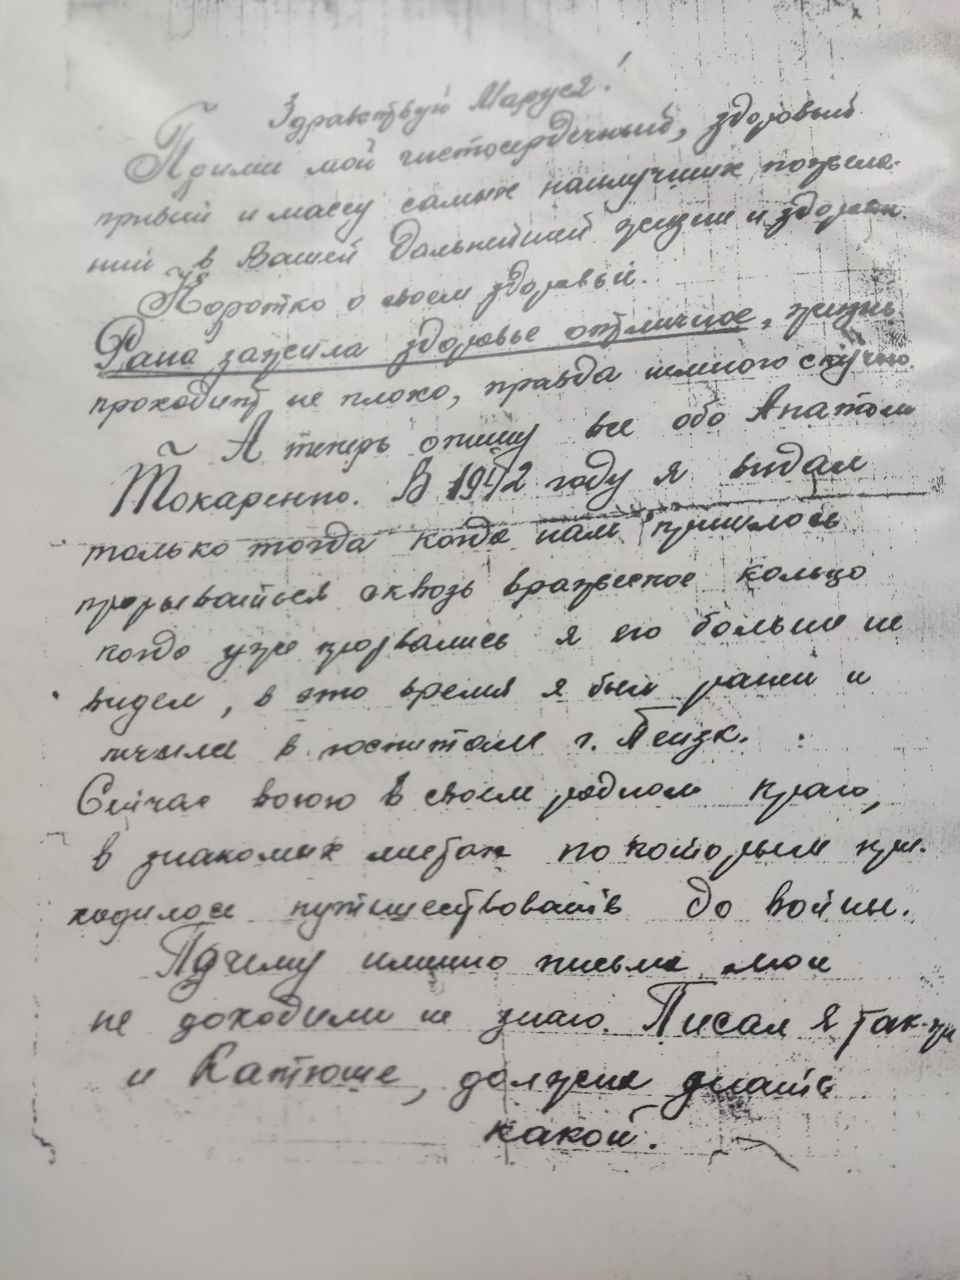 Здравствуй Маруся!
Прими мой чистосердечный, здоровый
привет и массу самых наилучших пожела-
ний в Вашей дальнейшей жизни и здоровьи
Коротко о своем здоровьи.
Рана зажила здоровье отличное, жизнь
проходит не плохо, правда немного скучно.
А теперь опишу все обо Анатоли
Токаренко. В 1942 году я видал
только тогда когда нам пришлось
прорываться сквозь вражеское кольцо
когда уже прорвались я его больше не
видел, в это время я был ранен и
в госпитале г.
Сейчас воюю в своем родном краю,
в знакомых местах по которым при-
ходилось путешествовать до войны.
Почему именно письма мои
не доходили не знаю. Писал я так-же
и Катюше, должна знать
какой.